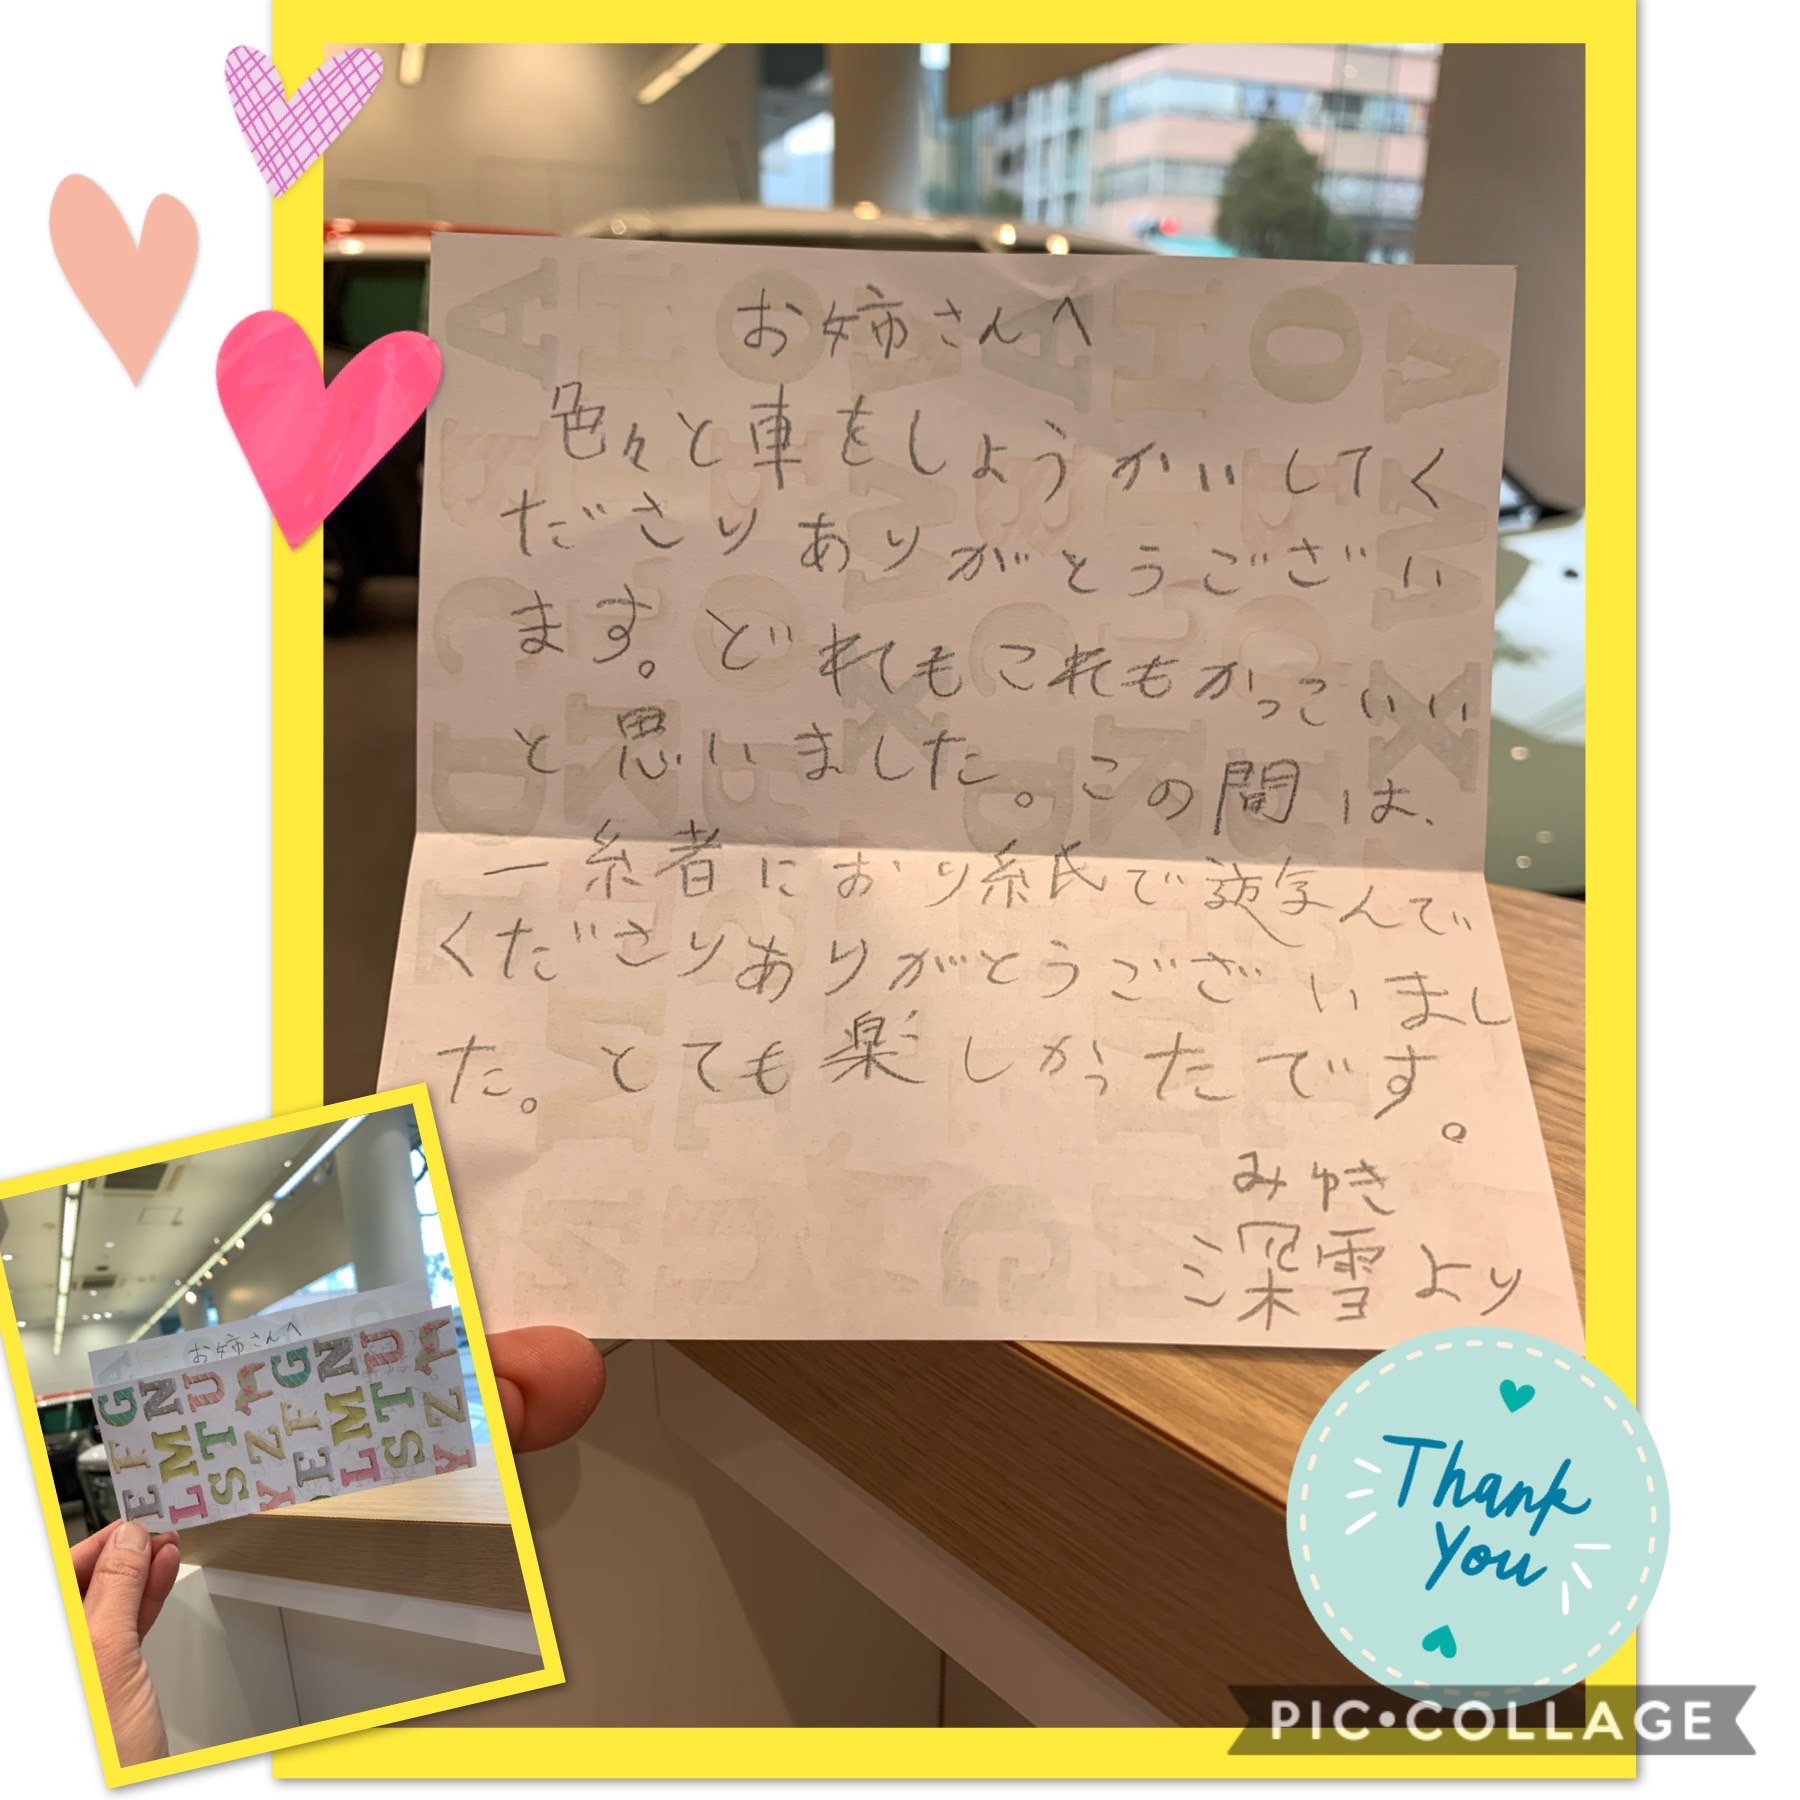 お姉さんへ
色々と車をしょうかいしてく
ださりありがとうござい
ます。どれもこれもかっこいい
と思いました。この間は、
一緒におり紙で遊んで
くださりありがとうございまし
た。とても楽しかったです。
みゆき
深雪より
お姉さんへ
Thank
You
PIC•COLLAGE